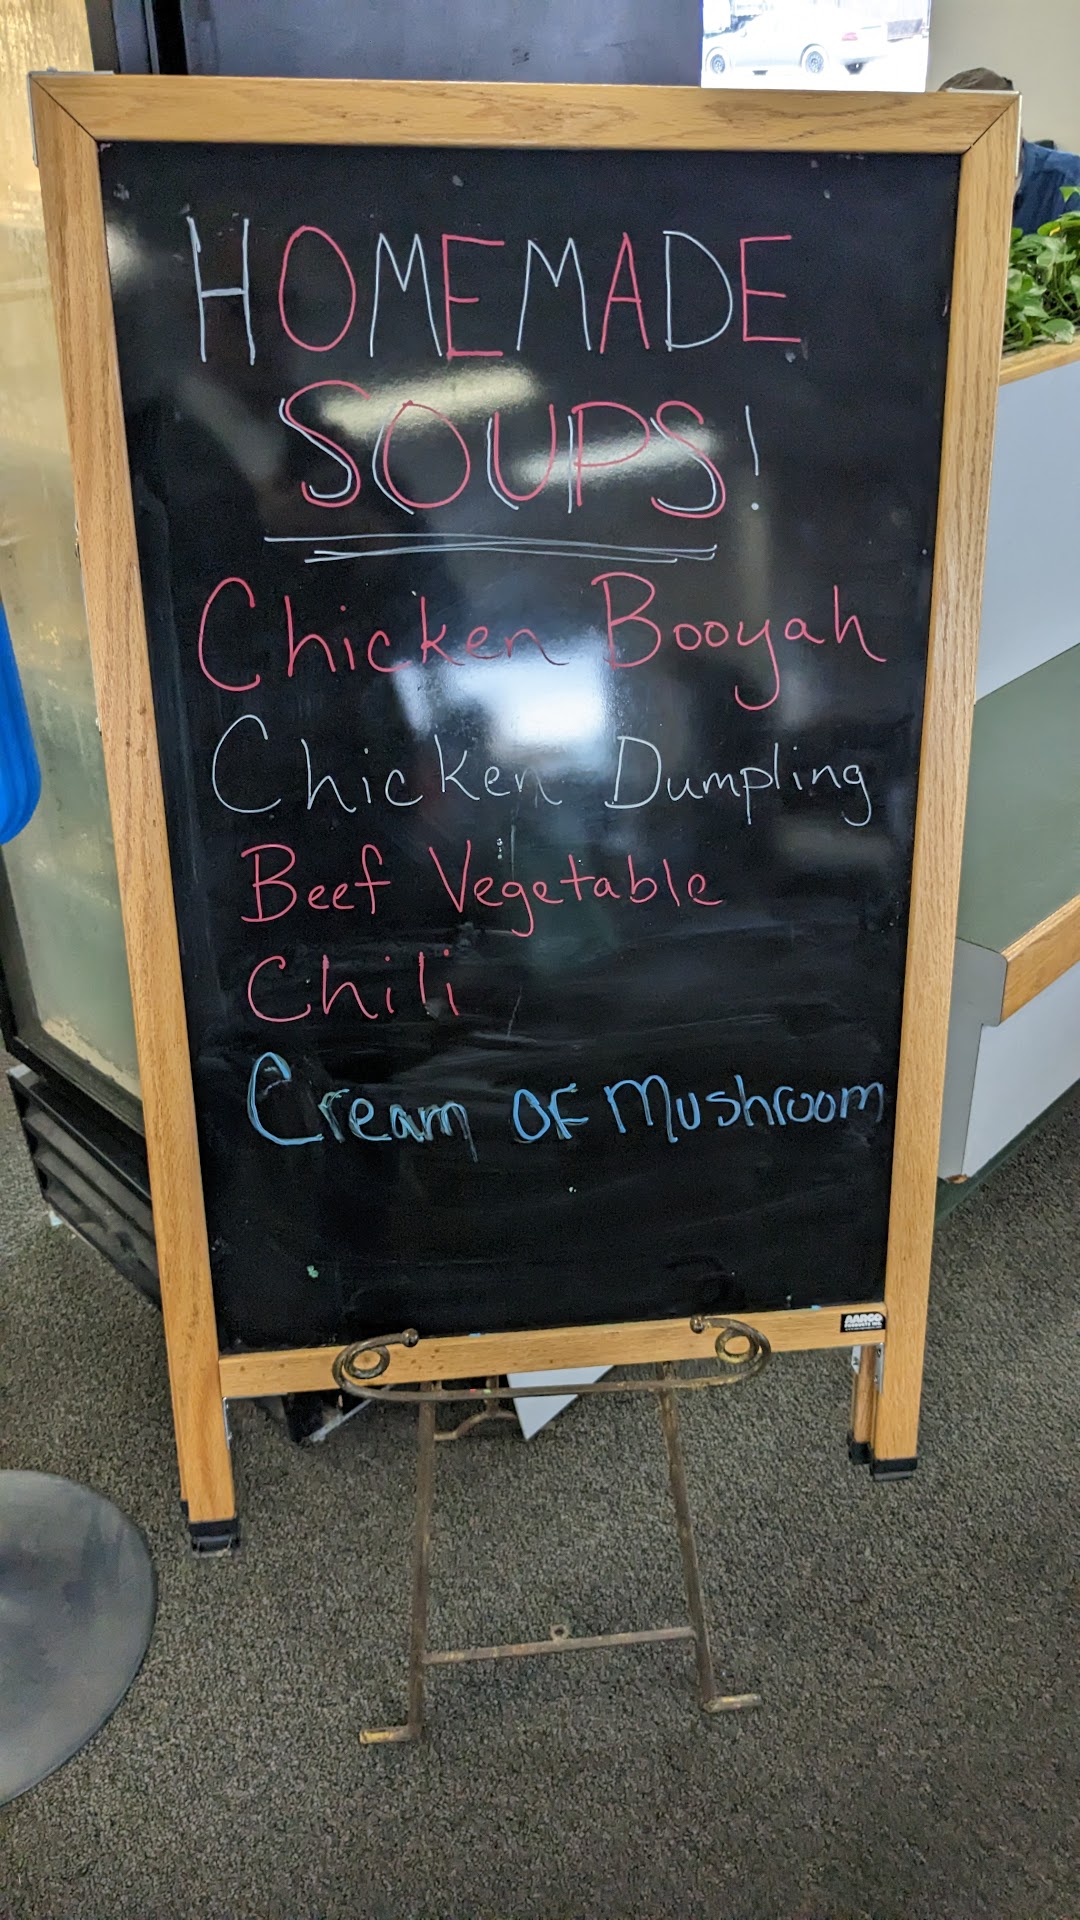 HOMEMADE
SOUPS!
Chicken Booyah
Chicken Dumpling
Beef Vegetable
Chili
Cream OF Mushroom
AARCO